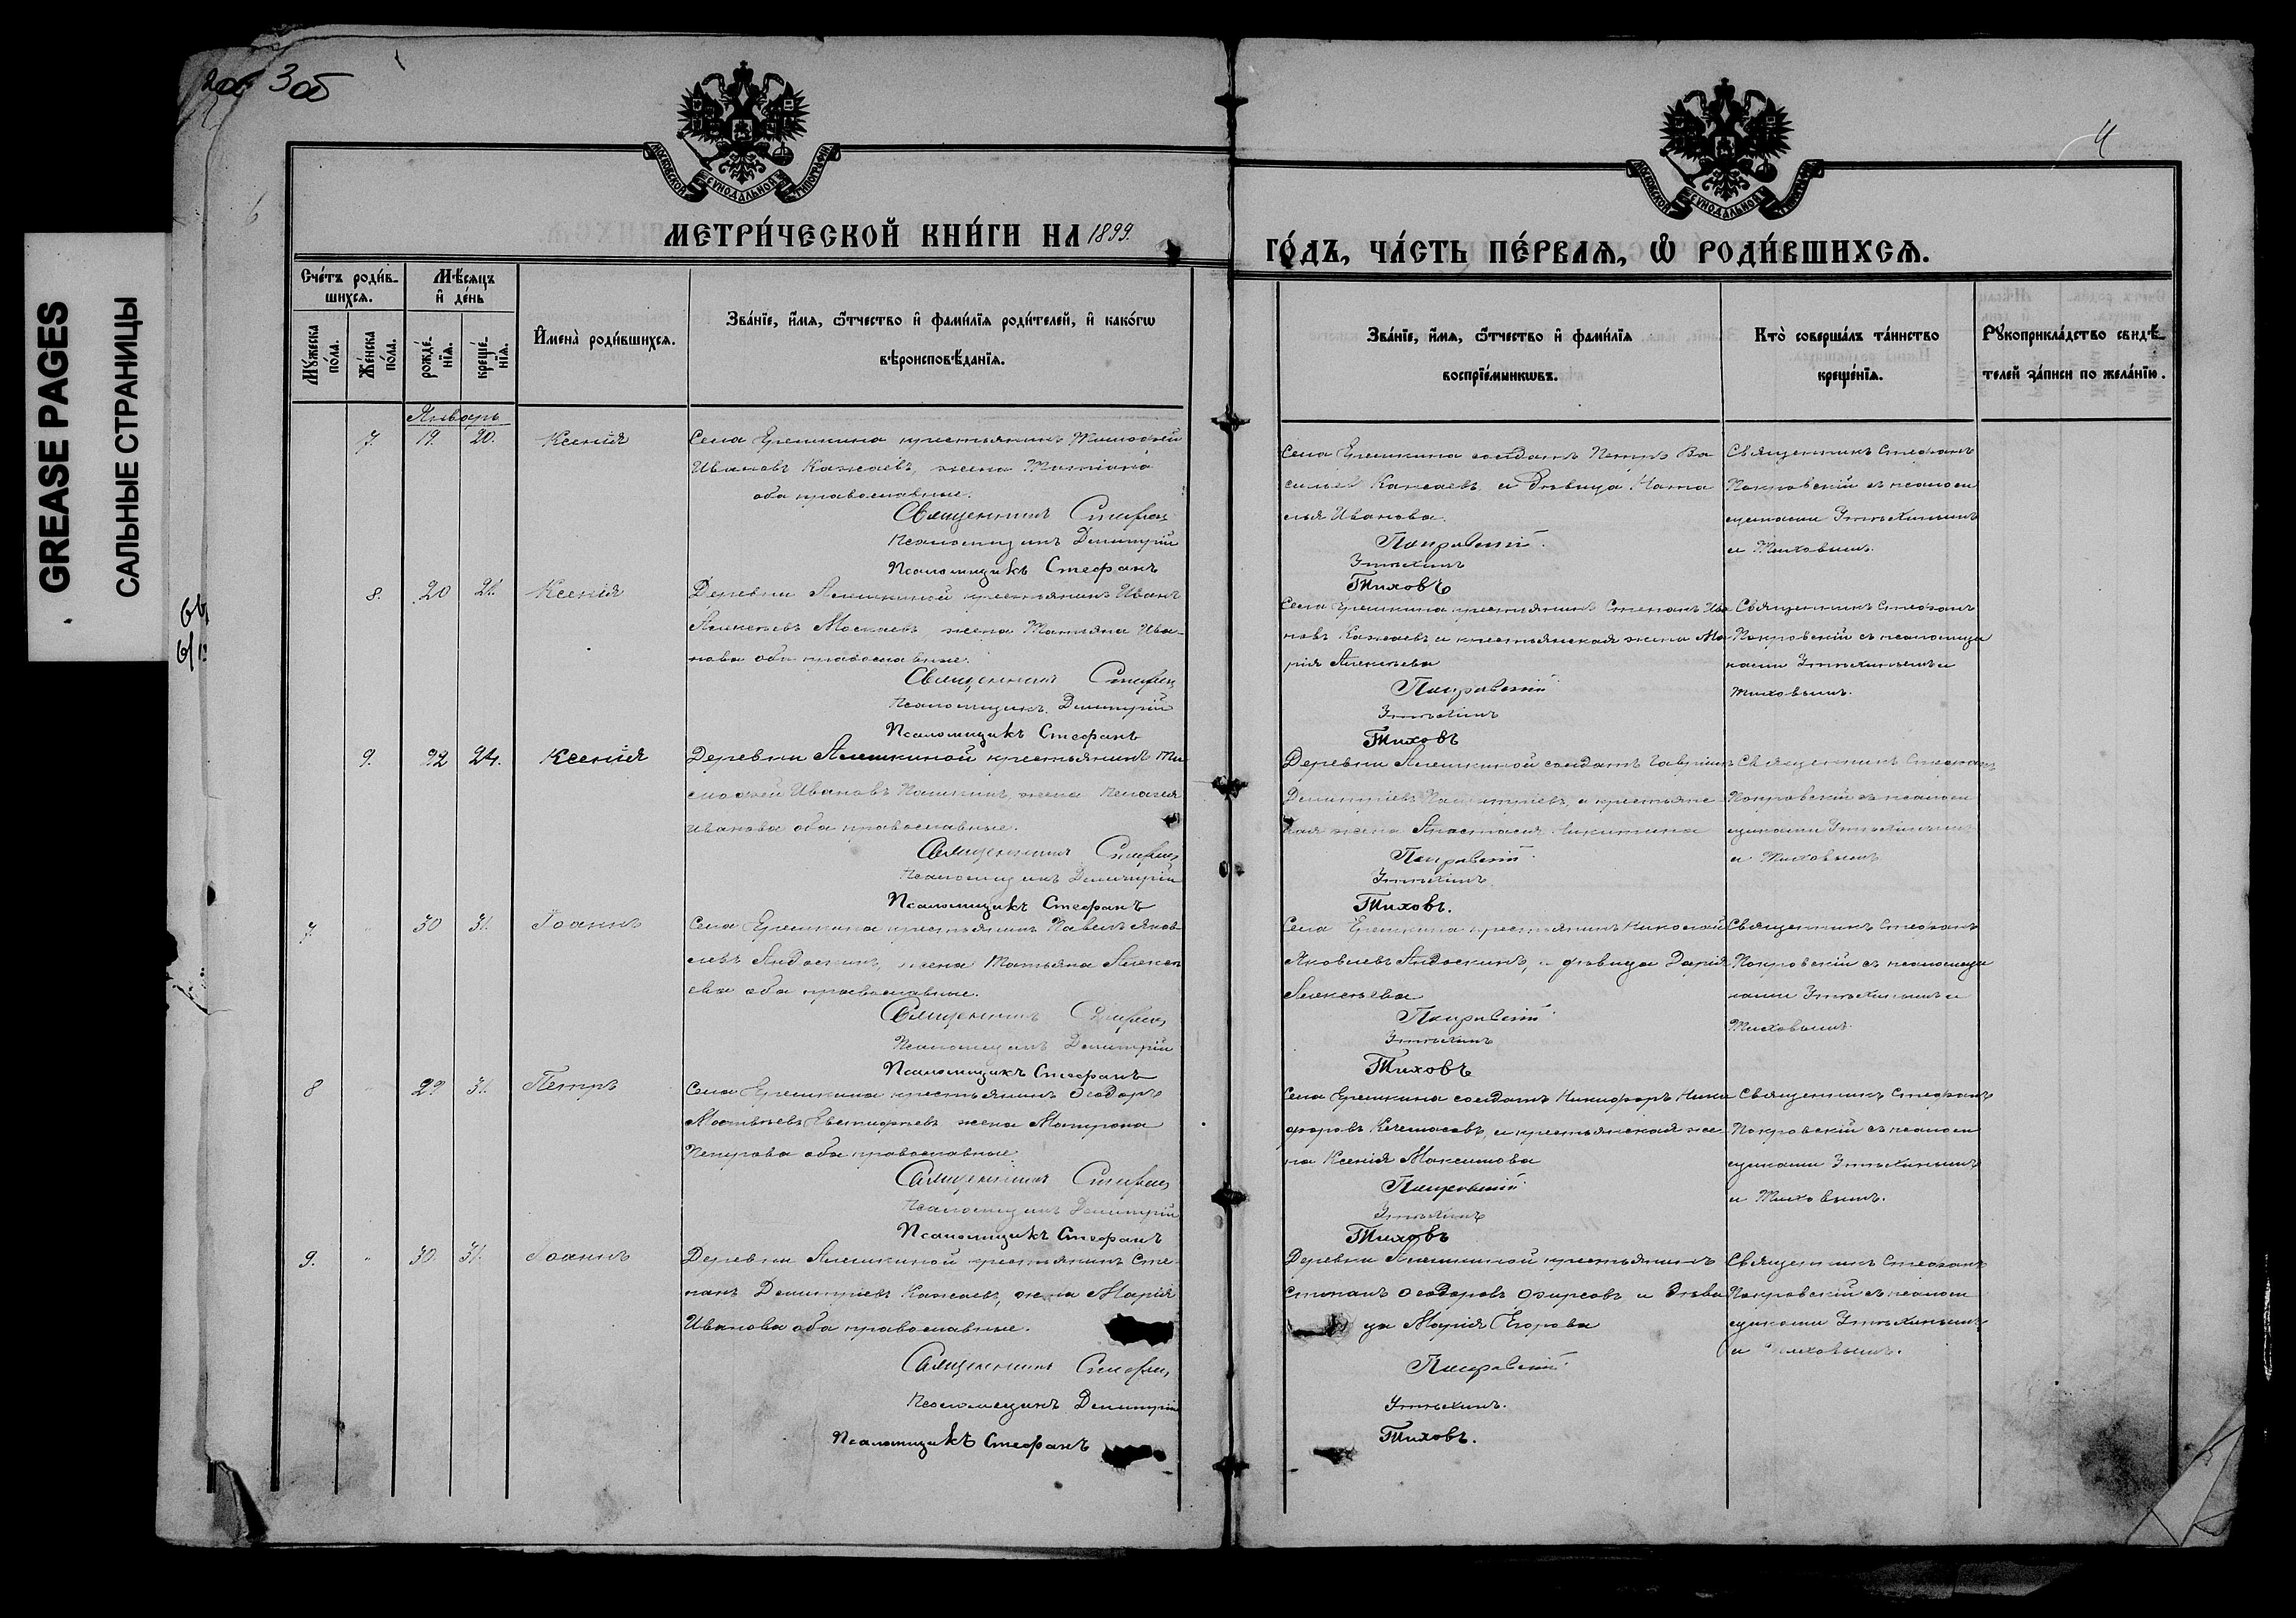 GREASE PAGES
САЛЬНЫЕ СТРАНИЦЫ
3об
4
МОСКОВСКОЙ СѴНОДАЛЬНОЙ ТИПОГРАФІИ
МОСКОВСКОЙ СѴНОДАЛЬНОЙ ТИПОГРАФІИ
МЕТРИ́ЧЕСКОЙ КНИ́ГИ НА 1899.
ГО́ДЪ, ЧА́СТЬ ПЕ́РВАѦ, Ѡ РОДИ́ВШИХСѦ.
Сче́тъ роди́в-
шихсѧ.
Мѣ́сѧцъ
и̑ де́нь
Мꙋ́жеска по́ла.
Же́нска по́ла.
рожде́-
нїѧ.
креще́-
нїѧ.
И̑мена̀ роди́вшихсѧ.
Зва́нїе, и̑́мѧ, ѻ҆́тчество и̑ фами́лїѧ роди́телей, и̑ како́гѡ
вѣроисповѣ́данїѧ.
Зва́нїе, и̑́мѧ, ѻ҆́тчество и̑ фами́лїѧ
воспрїе́мникѡвъ.
Кто̀ соверша́лъ та́инство
креще́нїѧ.
Рꙋкоприкла́дство свидѣ́-
телей за́писи по жела́нїю.
Январь
7. 19. 20. Ксенія
Села Ерешкина крестьянинъ Тимофей
Ивановъ Кажаевъ, жена Татіана
оба православные.
Священникъ Стефан
Псаломщикъ Димитрій
Псаломщикъ Стефанъ
Села Ерешкина солдатъ Петръ Ва
сильев Кажаевъ, и девица Ната
лья Иванова.
Покровский
Утѣхинъ
Тиховъ
Священникъ Стефанъ
Покровскій съ псалом
щиками Утѣхинымъ
и Тиховымъ.
8. 20 21. Ксенія
Деревни Алешкиной крестьянинъ Иванъ
Алексѣевъ Москаевъ, жена Татьяна Ива-
нова оба православные.
Священникъ Стефан
Псаломщикъ Димитрій
Псаломщикъ Стефанъ
Села Ерешкина крестьянинъ Степанъ Ива
новъ Кажаевъ и крестьянская жена Ма
рія Алексѣева
Покровский
Утѣхинъ
Тиховъ
Священникъ Стефанъ
Покровскій съ псаломщи
ками Утѣхинымъ и
Тиховымъ.
9. 22 24. Ксенія
Деревни Алешкиной крестьянинъ Ти
мофей Ивановъ Пашкинъ, жена Пелагея
Иванова оба православные.
Священникъ Стефан
Псаломщикъ Димитрій
Псаломщикъ Стефанъ
Деревни Алешкиной солдатъ Гавріилъ
Димитріевъ, и крестьянс
кая жена Анастасія Никитина
Покровский
Утѣхинъ
Тиховъ.
Священникъ Стефанъ
Покровскій съ псалом
щиками Утѣхинымъ
и Тиховымъ
7. 30 31. Іоаннъ
Села Ерешкина крестьянинъ Павелъ Яков
левъ Андоскинъ, жена Татьяна Алексѣ
ева оба православные.
Священникъ Стефан
Псаломщикъ Димитрій
Псаломщикъ Стефанъ
Села Ерешкина крестьянинъ Николай
Яковлевъ Андоскинъ, и девица Дарія
Алексѣева
Покровский
Утѣхинъ
Тиховъ
Священникъ Стефанъ
Покровскій съ псаломщи
ками Утѣхинымъ и
Тиховымъ.
8 29 31. Петръ
Села Ерешкина крестьянинъ Ѳеодоръ
Матвѣевъ жена Матрона
Петрова оба православные.
Священникъ Стефан
Псаломщикъ Димитрій
Псаломщикъ Стефанъ
Села Ерешкина солдатъ Никифоръ Ники
форовъ и крестьянская же
на Ксенія Максимова
Покровский
Утѣхинъ
Тиховъ
Священникъ Стефанъ
Покровскій съ псалом
щиками Утѣхинымъ
и Тиховымъ.
9. 30. 31. Іоаннъ
Деревни Алешкиной крестьянинъ Сте
панъ Димитріевъ Кажаевъ, жена Марія
Иванова оба православные.
Священникъ Стефан
Псаломщикъ Димитрій
Псаломщикъ Стефанъ
Деревни Алешкиной крестьянинъ
Степанъ Ѳеодоровъ Ѳирсовъ и деви
ца Марія Егорова
Покровский
Утѣхинъ.
Тиховъ.
Священникъ Стефанъ
Покровскій съ псалом
щиками Утѣхинымъ
и Тиховымъ.